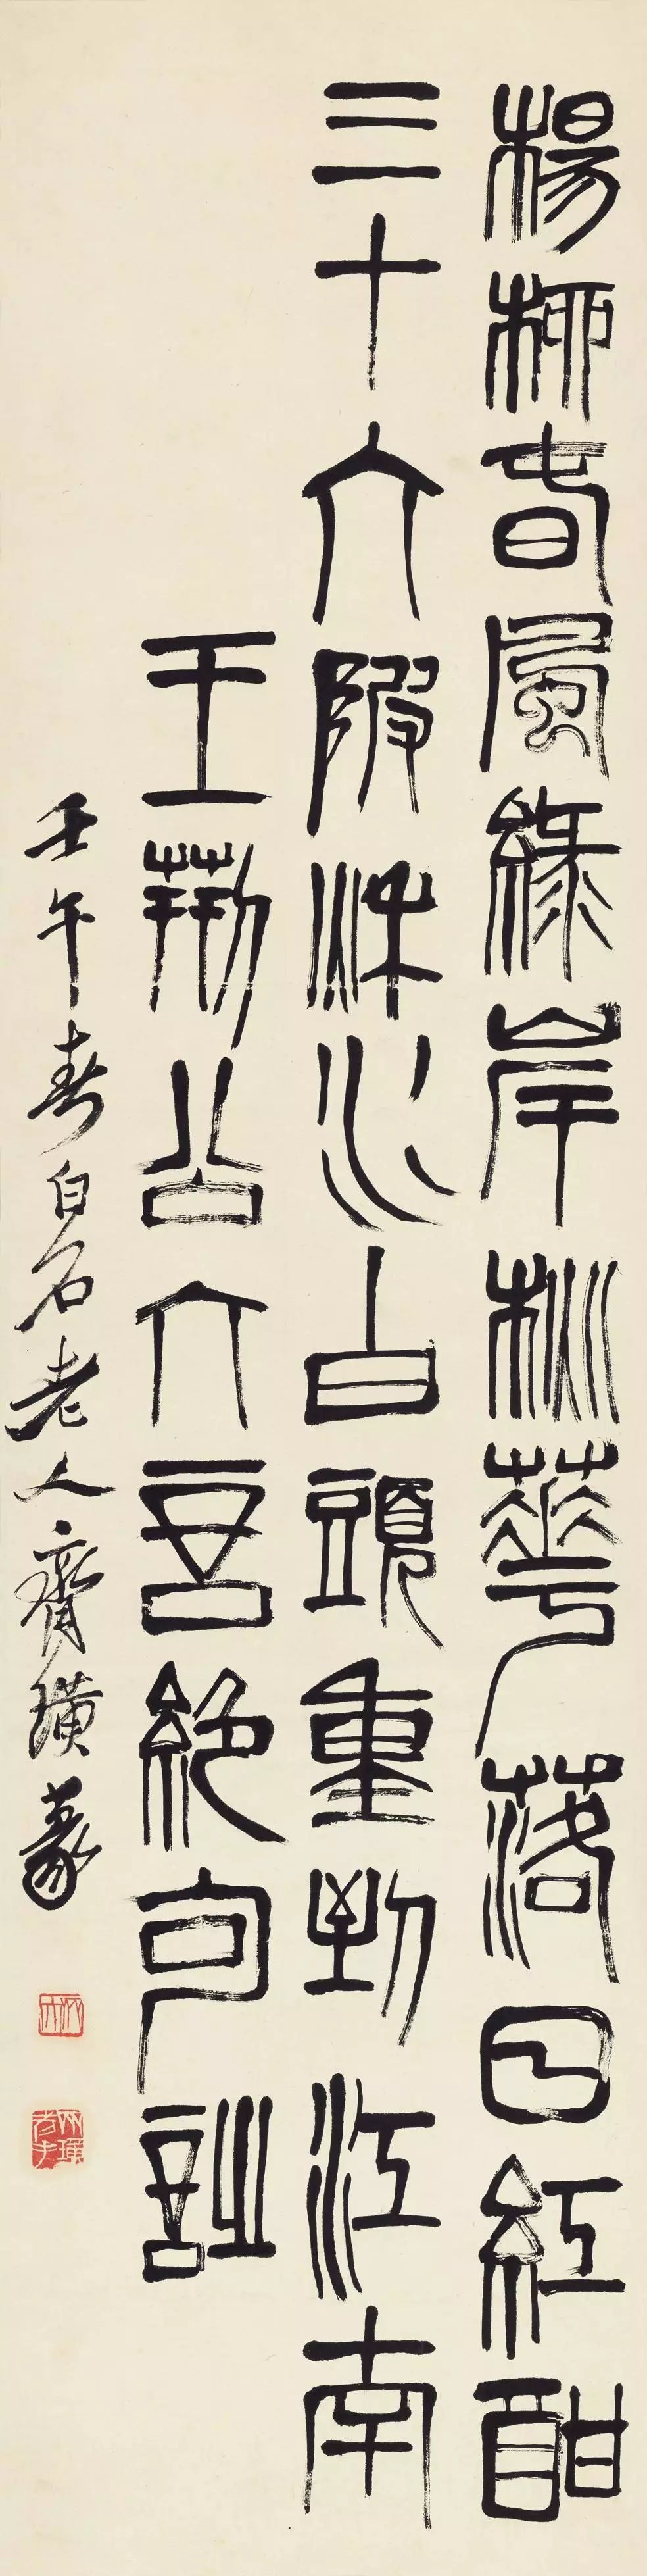 楊柳春風綠岸桃華落日紅酣
三十六陂流水白頭重到江南
王荊公六言絕句詩
壬午春白石老人齊璜篆
齊璜老手